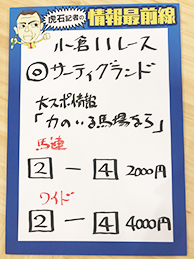 虎石記者の
情報最前線
小倉11レース
◎サーティグランド
大スポ情報
「力のいる馬場なら」
馬連
2-4 2000円
ワイド
2-4 4000円